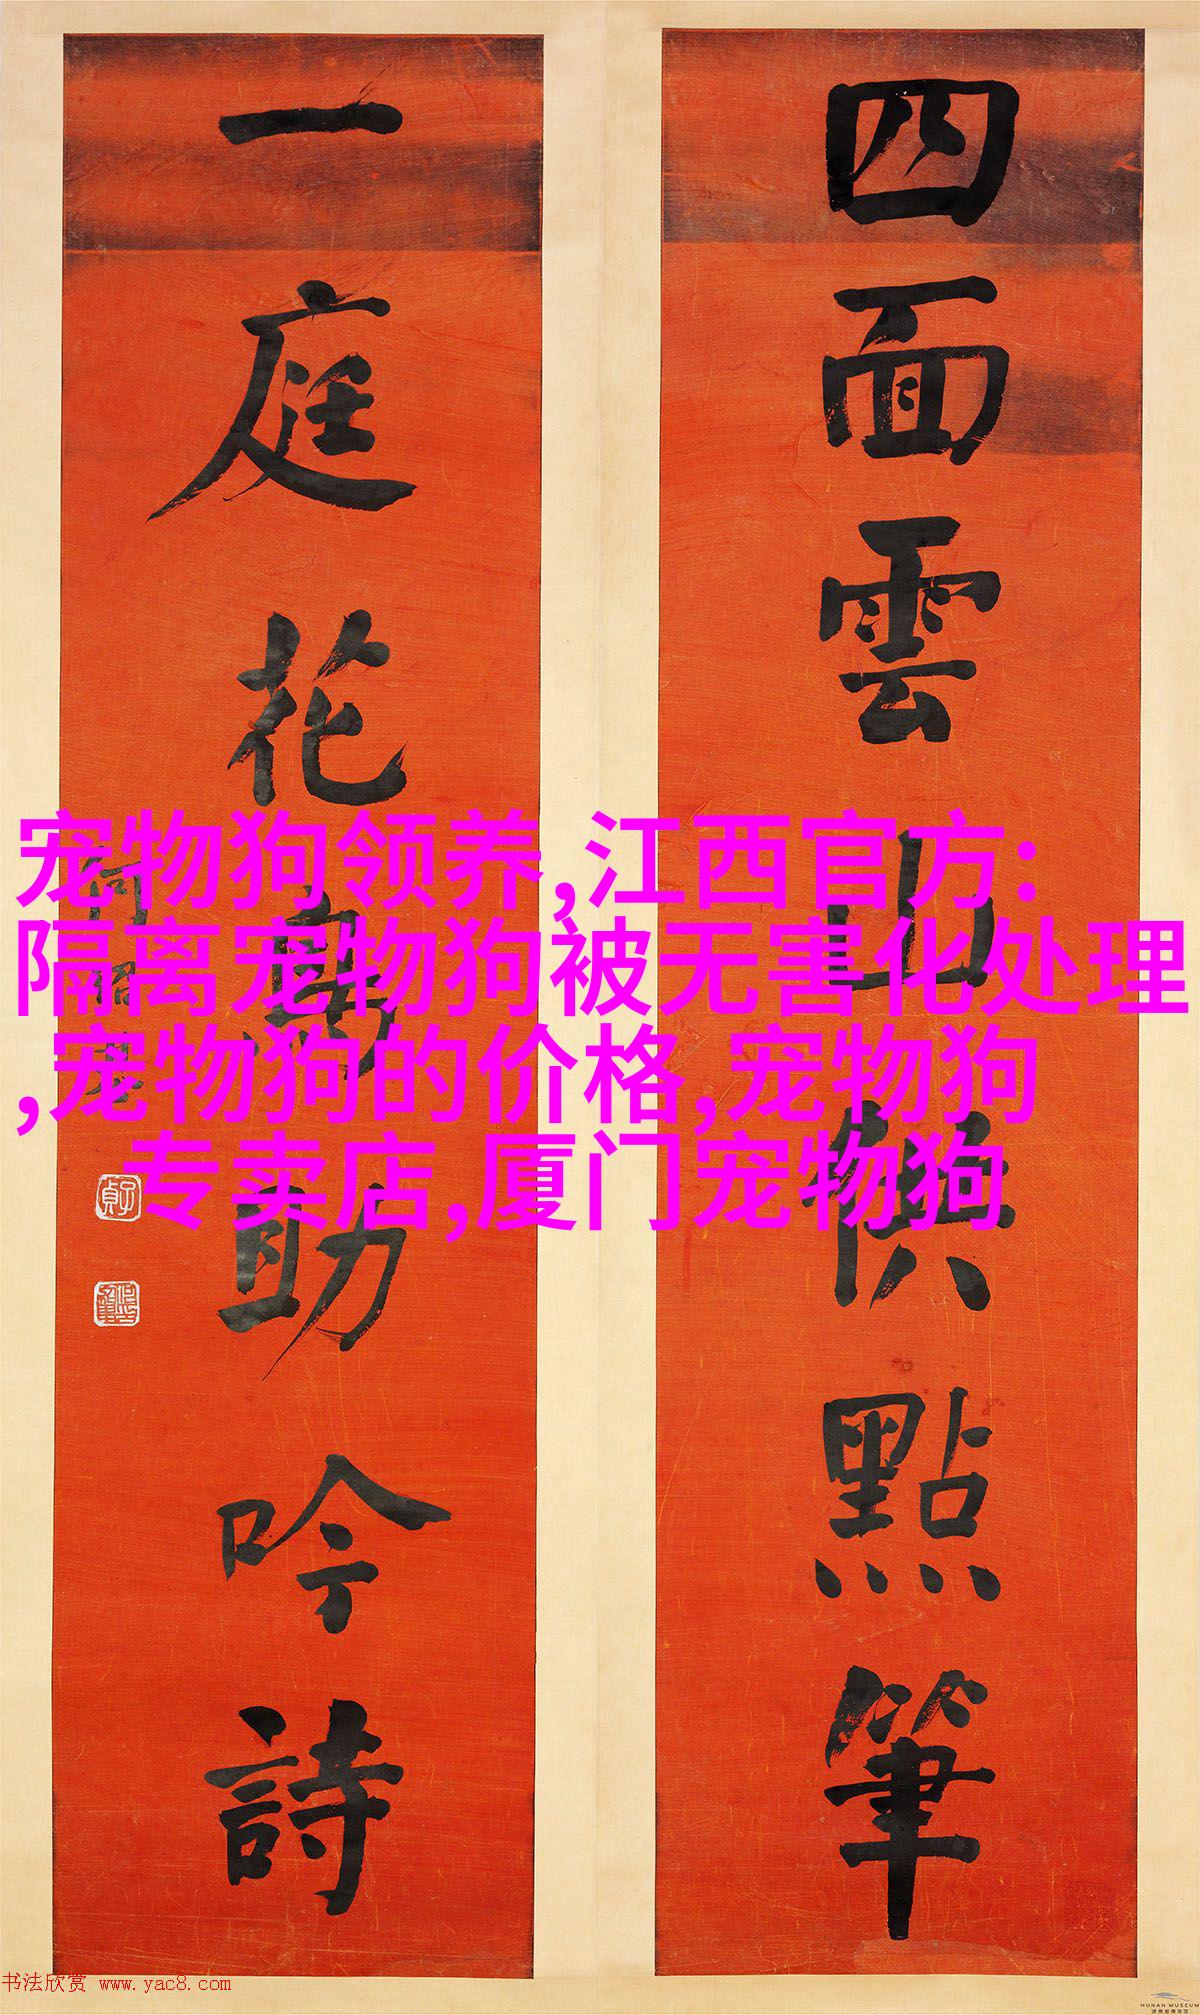 四面雲山供點筆
一庭花鳥助吟詩
何紹基
宠物狗领养,江西官方:
隔离宠物狗被无害化处理
,宠物狗的价格,宠物狗
专卖店,厦门宠物狗
书法欣赏 www.yac8.com
HUNAN MUSEUM
湖南博物院